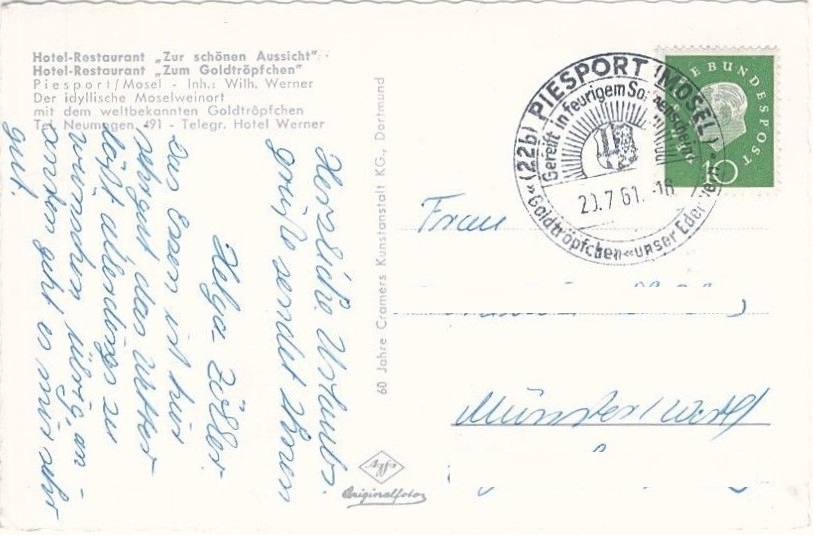 Hotel-Restaurant „Zur schönen Aussicht"
Hotel-Restaurant „Zum Goldtröpfchen"
Piesport/Mosel - Inh.: Wilh. Werner
Der idyllische Moselweinort
mit dem weltbekannten Goldtröpfchen
Tel. Neumagen 491 - Telegr. Hotel Werner
Herzliche Urlaubs-
grüße sendet Ihnen
Helga Zöller
Das Essen ist hier
sehr gut das Wetter
läßt allerdings zu
wünschen übrig, an-
sonsten geht es mir sehr
gut.
60 Jahre Cramers Kunstanstalt KG., Dortmund
Agfa
Originalfoto
(22b) PIESPORT (MOSEL)
Gereift in feurigem Sonnenschein
20.7.61.-18
«Goldtröpfchen« unser Edelwein»
DEUTSCHE BUNDESPOST
10
Frau
Münster/Westf